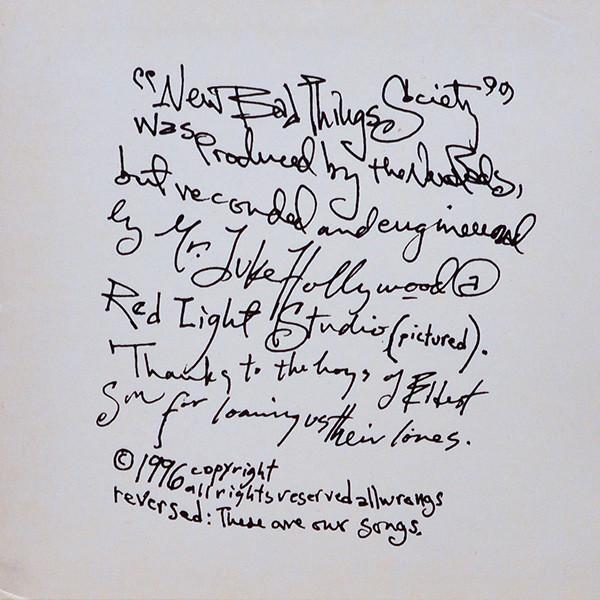 "New Bad Things Society"
was produced by the New Bads,
but recorded and engineered
by Mr. Luke Hollywood @
Red Light Studio (pictured).
Thanks to the boys of Eldest
Son for loaning us their lines.
© 1996 copyright
all rights reserved all wrongs
reversed: These are our songs.